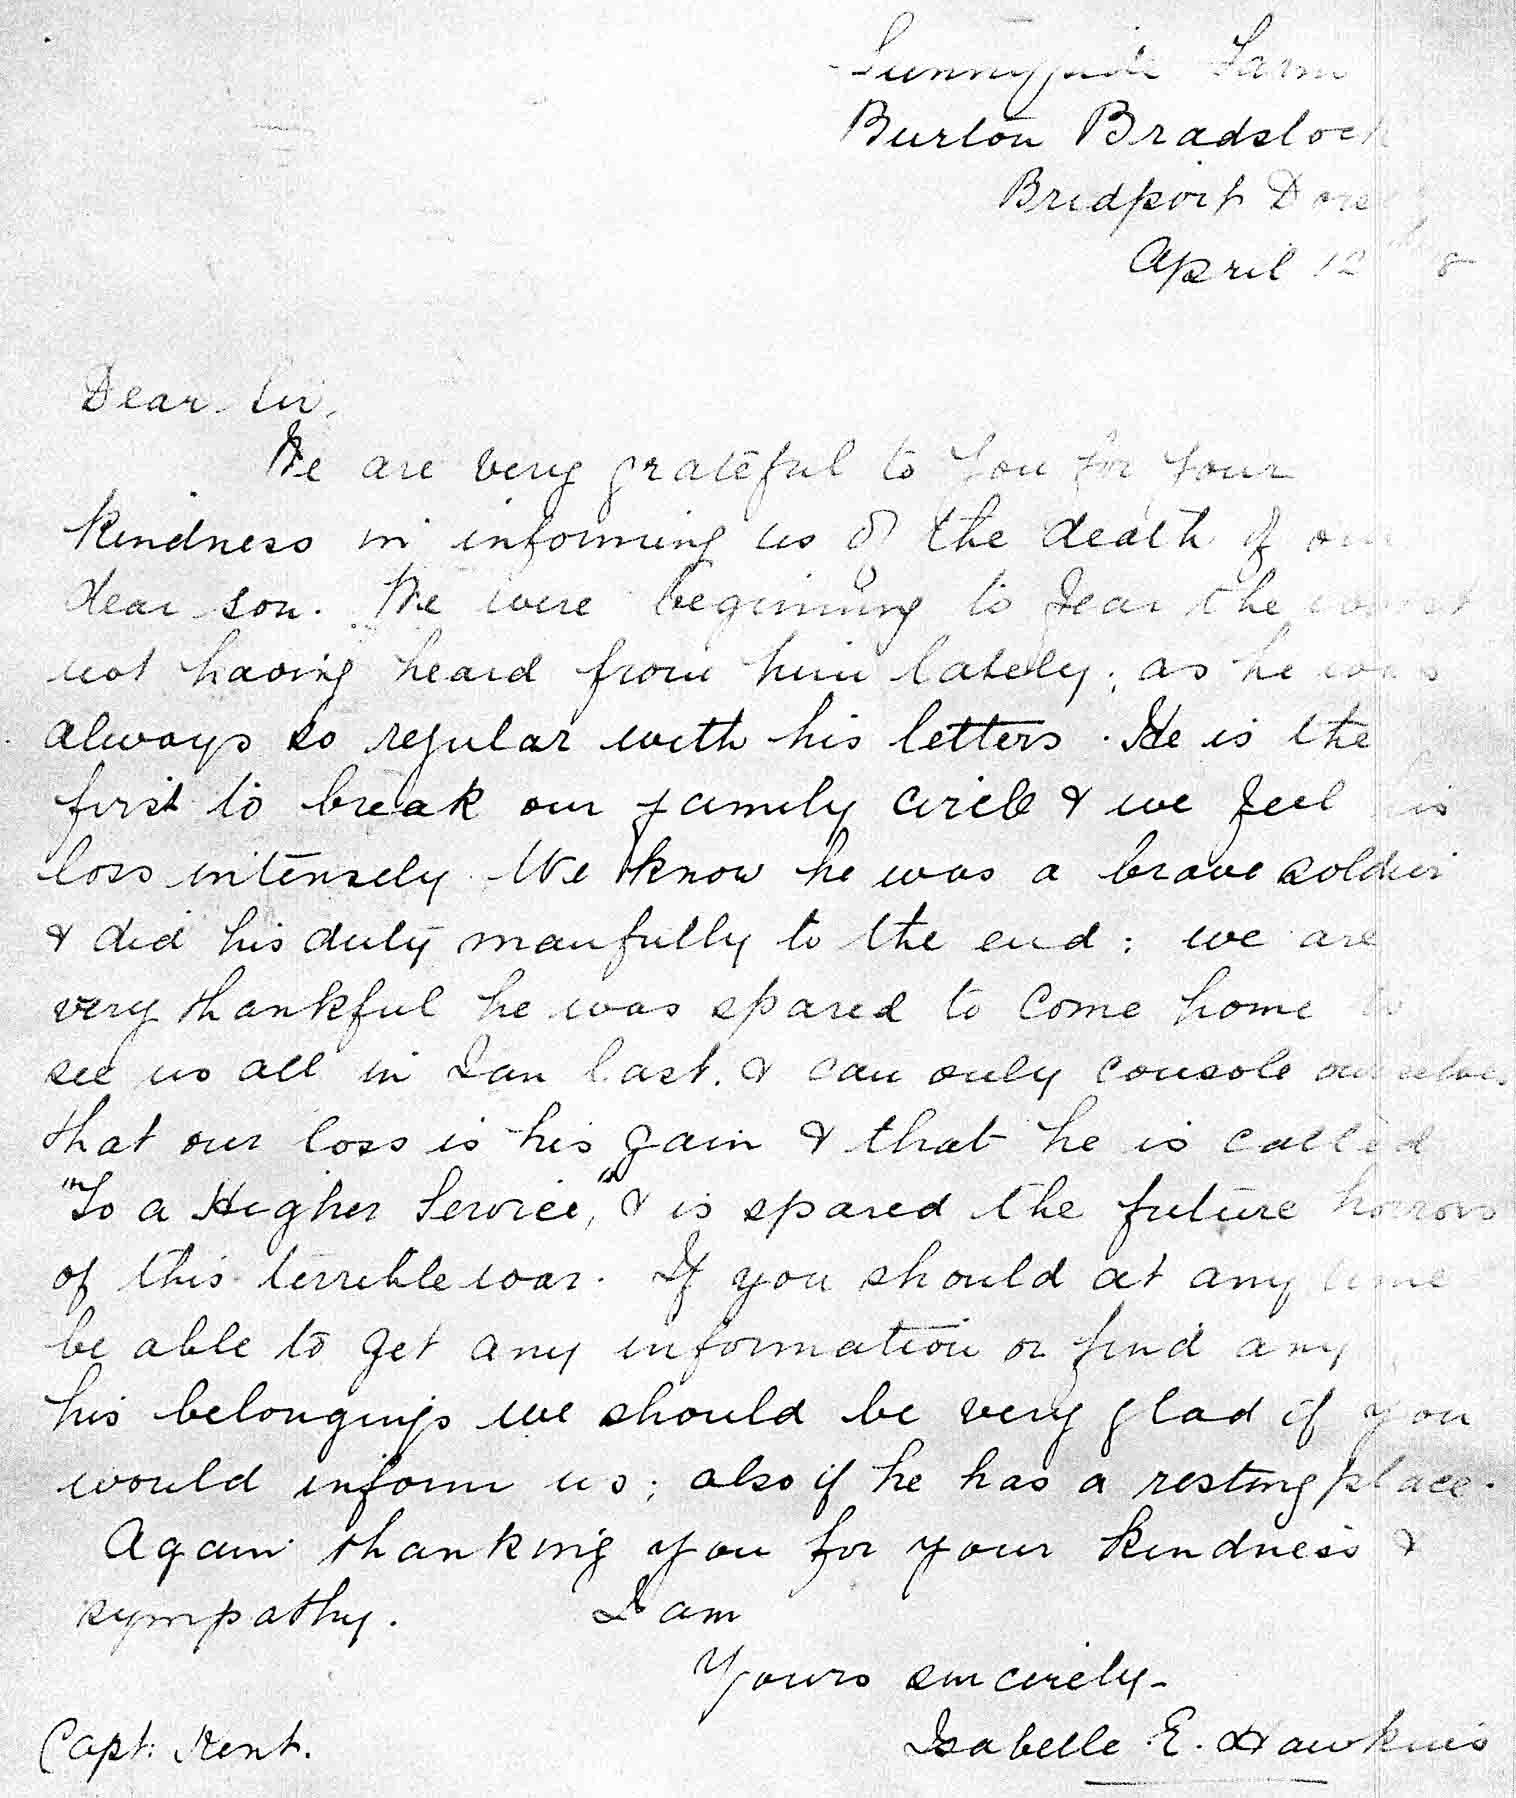 Sunnyside Farm
Burton Bradstock
Bridport Dorset
April 12th 8
Dear Sir,
We are very grateful to you for your
kindness in informing us of the death of our
dear son. We were beginning to fear the worst
not having heard from him lately; as he was
always so regular with his letters. He is the
first to break our family circle & we feel his
loss intensely. We know he was a brave soldier
& did his duty manfully to the end: we are
very thankful he was spared to come home to
see us all in Jan last. & can only console ourselves
that our loss is his gain & that he is called
"To a Higher Service," & is spared the future horrors
of this terrible war. If you should at any time
be able to get any information or find any
his belongings we should be very glad if you
would inform us; also if he has a resting place.
Again thanking you for your kindness &
sympathy. I am
Yours sincerely-
Isabelle E. Hawkins
Capt. Kent.